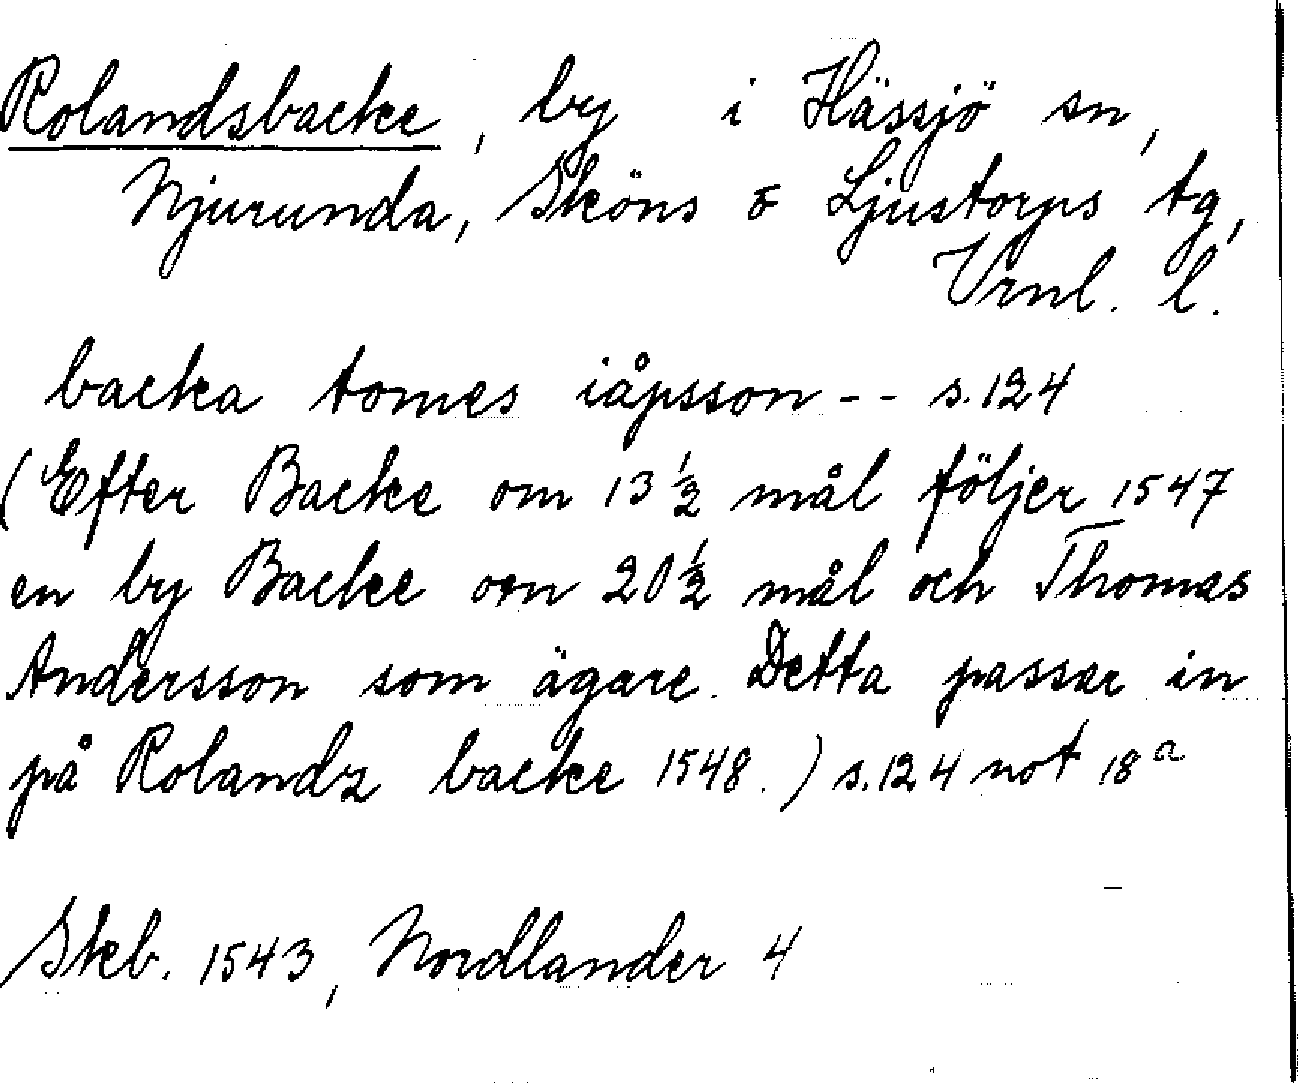 Rolandsbacke, by i Hässjö sn,
Njurunda, Sköns o Ljustorps tg,
Vrnl. l.
backa tomes iåpsson -- s.124
(Efter Backe om 13 1/2 mål följer 1547
en by Backe om 20 1/2 mål och Thomas
Andersson som ägare. Detta passar in
på Rolandz backe 1548.) s.124 not 18a
Skb. 1543, Nordlander 4